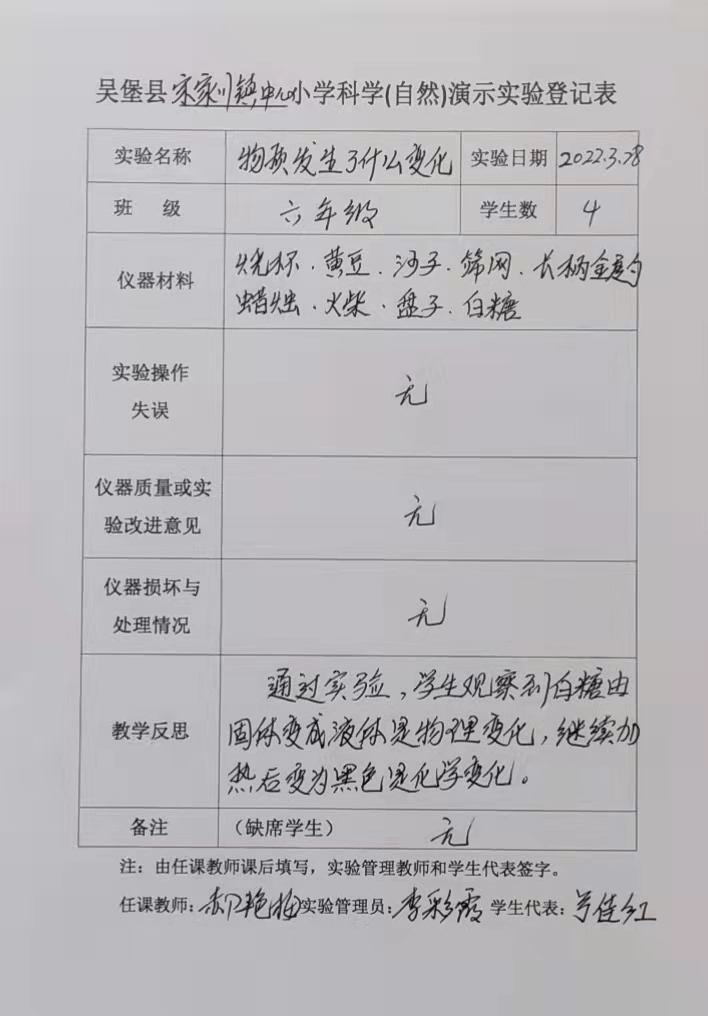 吴堡县宋家川镇中心小学科学(自然)演示实验登记表
实验名称 物质发生了什么变化 实验日期 2022.3.28
班 级 六年级 学生数 4
仪器材料 烧杯.黄豆.沙子.筛网.长柄金属勺
蜡烛.火柴.盘子.白糖
实验操作
失误 无
仪器质量或实
验改进意见 无
仪器损坏与
处理情况 无
教学反思 通过实验,学生观察到白糖由
固体变成液体是物理变化,继续加
热后变为黑色是化学变化。
备注 (缺席学生) 无
注:由任课教师课后填写,实验管理教师和学生代表签字。
任课教师:郝艳梅 实验管理员:李彩霞 学生代表:佳红